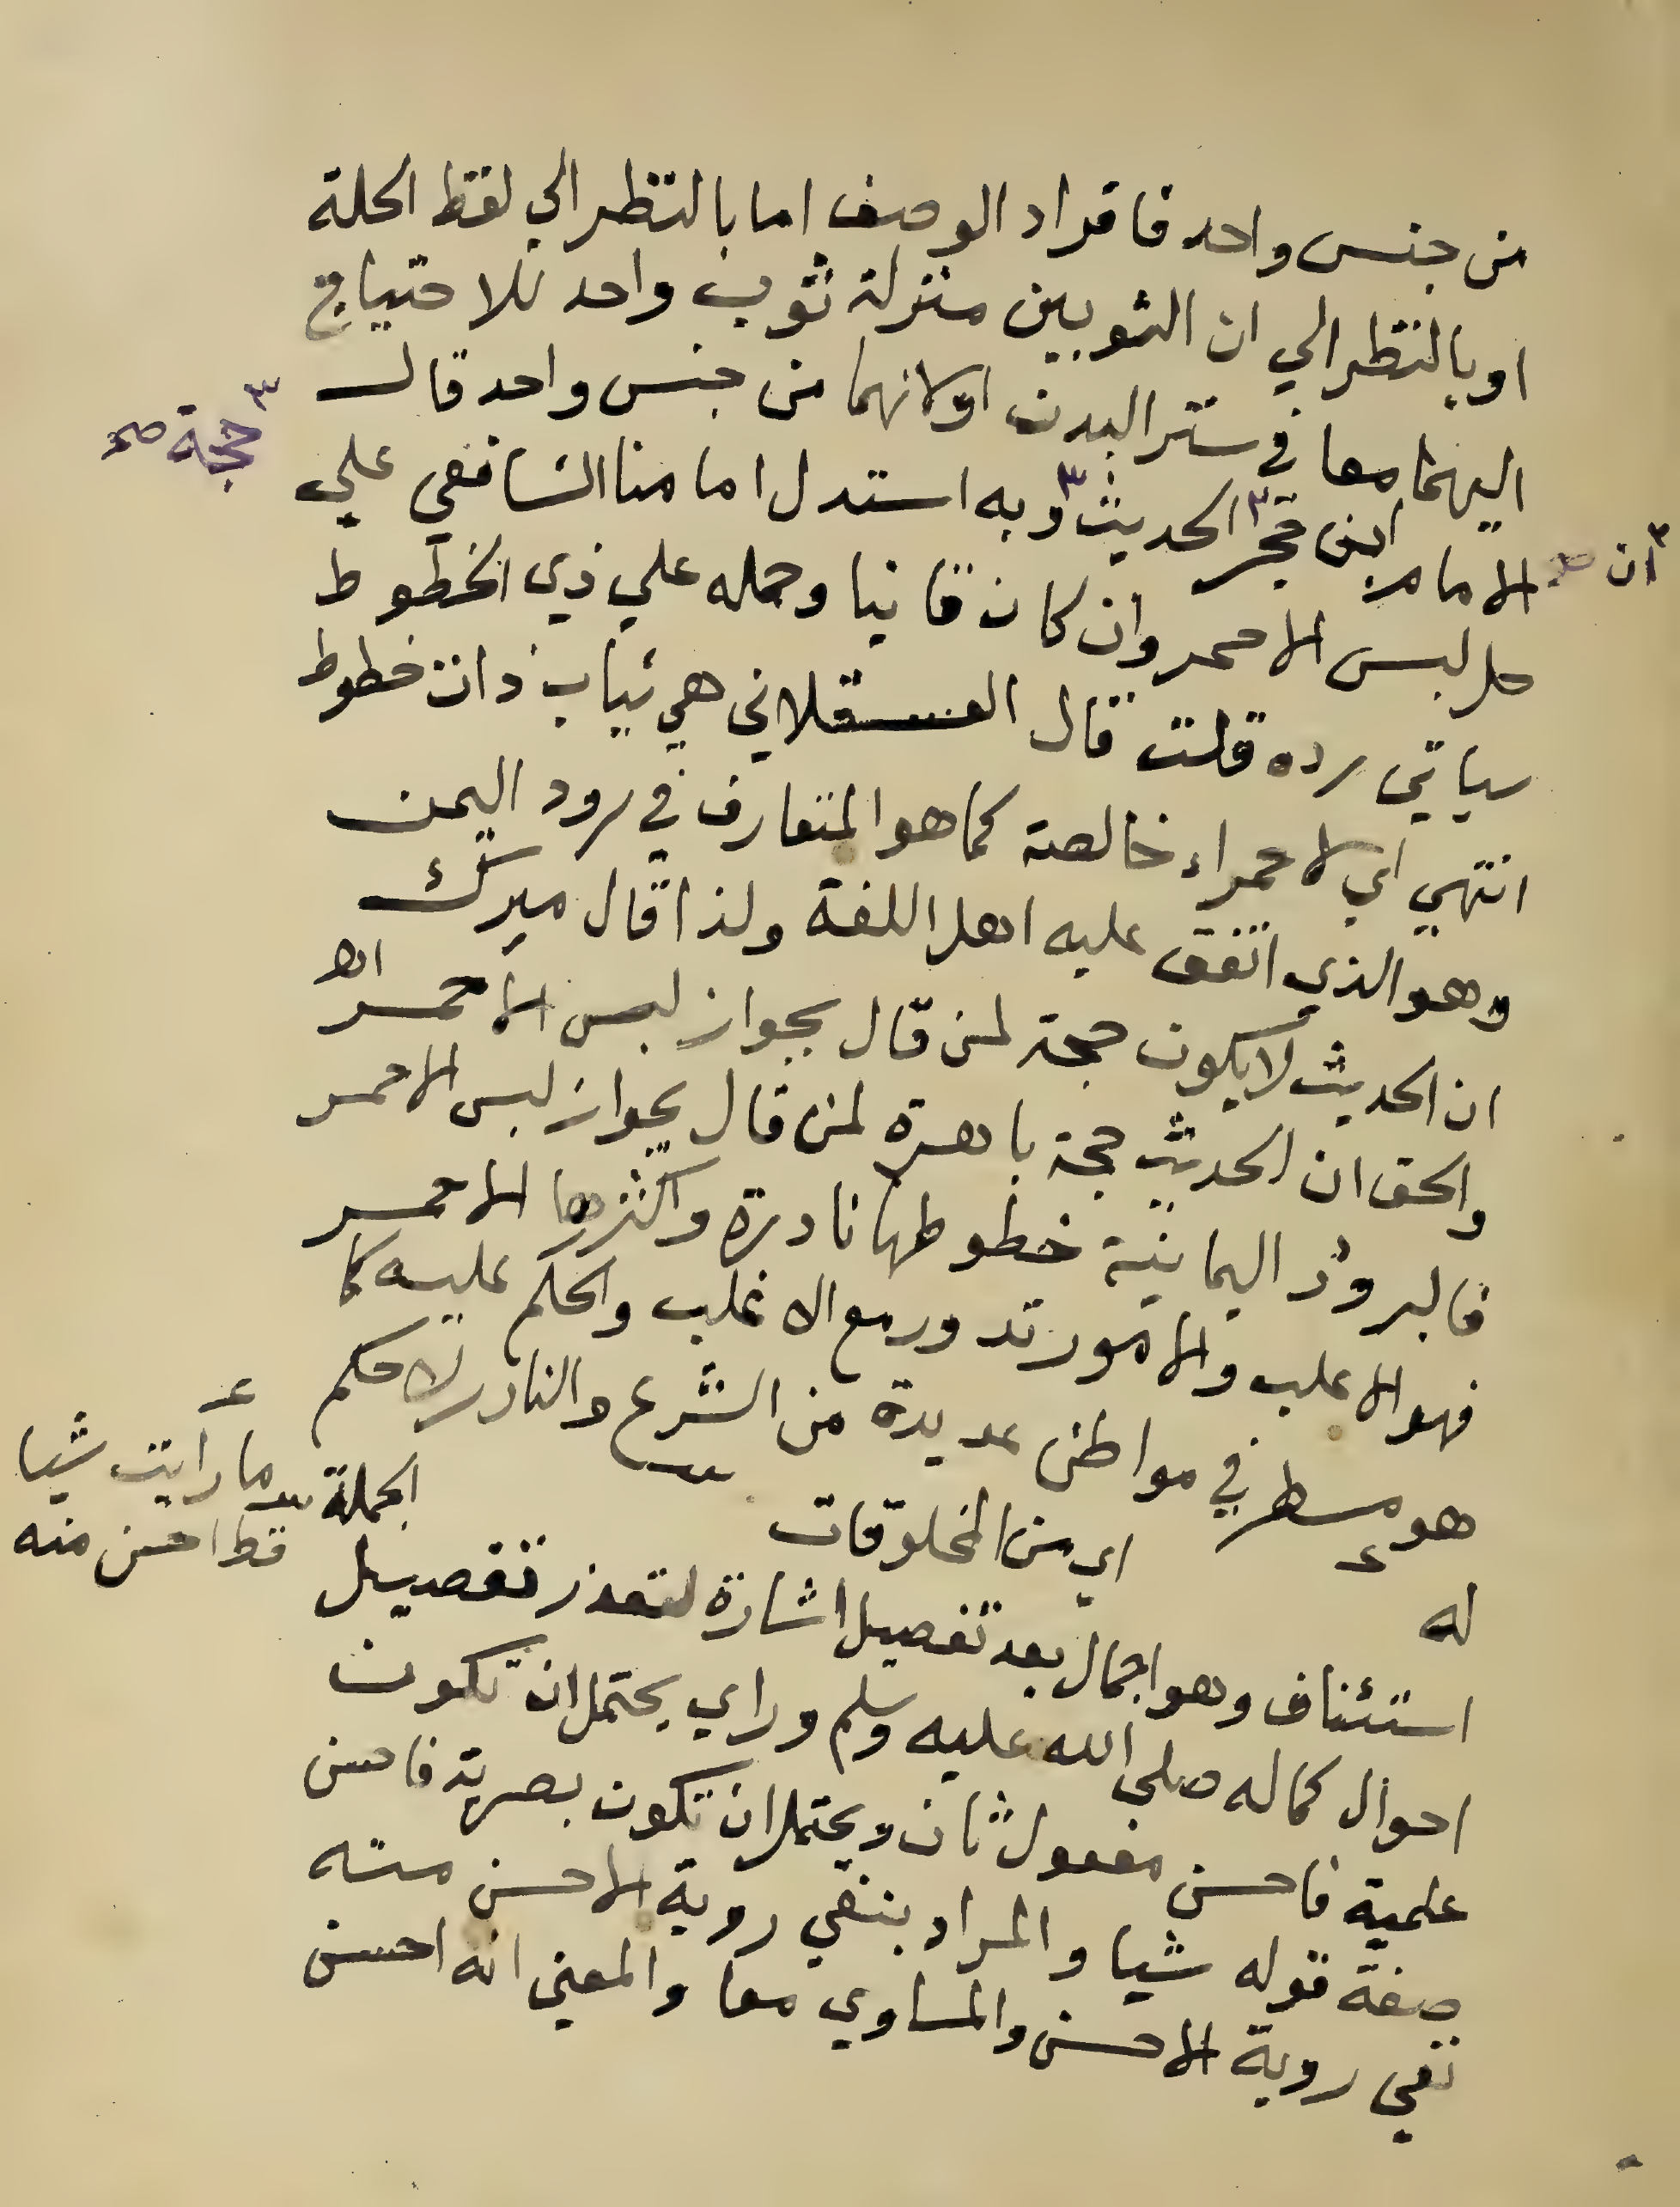 من جنس واحد فافراد الوصف اما بالنظر الي لفظ الحلة
او بالنظر الي ان الثوبين منزلة ثوب واحد للاحتياج
اليهما معا في ستر البدن او لانهما من جنس واحد قال
الامام ابن حجر ٣ الحديث ٣ وبه استدل امامنا الشافعي علي
٣ حجة صح
٣ ان صح
حل لبس الاحمر وان كان قانيا وحمله علي ذي الخطوط
سياتي رده قلت قال العسقلاني هي ثياب ذات خطوط
انتهي اي لا حمراء خالصة كما هو المتعارف في برود اليمن
وهو الذي اتفق عليه اهل اللغة ولذا قال ميرك
ان الحديث لا يكون حجة لمن قال بجواز لبس الاحمر اهـ
والحق ان الحديث حجة باهرة لمن قال بجواز لبس الاحمر
فالبرود اليمانية خطوطها نادرة واكثرها الاحمر
فهو الاغلب والامور تدور مع الاغلب والحكم عليه كما
هو مسطر في مواطن عديدة من الشرع والنادر لا حكم
له اي من المخلوقات الجملة
ما رأيت شيا
قط احسن منه
استئناف وهو اجمال بعد تفصيل اشارة لتعذر تفصيل
احوال كماله صلي الله عليه وسلم وراي يحتمل ان تكون
علمية فاحسن مفعول ثان ويحتمل ان تكون بصرية فاحسن
صفة قوله شيا والمراد بنفي روية الاحسن منه
نفي روية الاحسن والمساوي معا والمعني انه احسن